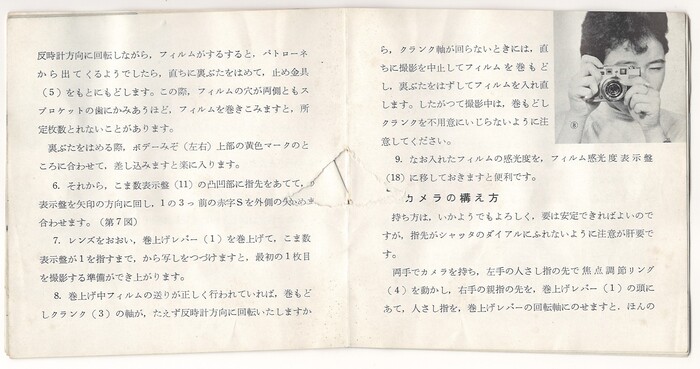 反時計方向に回転しながら，フィルムがするすると，パトローネ
から出てくるようでしたら，直ちに裏ぶたをはめて，止め金具
（5）をもとにもどします。この際，フィルムの穴が両側ともス
プロケットの歯にかみあうほど，フィルムを巻きこみますと，所
定枚数とれないことがあります。
裏ぶたをはめる際，ボデーみぞ（左右）上部の黄色マークのと
ころに合わせて，差し込みますと楽に入ります。
6. それから，こま数表示盤（11）の凸凹部に指先をあてて，
表示盤を矢印の方向に回し，1の3っ前の赤字Sを外側の
合わせます。（第7図）
7. レンズをおおい，巻上げレバー（1）を巻上げて，こま数
表示盤が1を指すまで，から写しをつづけますと，最初の1枚目
を撮影する準備ができ上がります。
8. 巻上げ中フィルムの送りが正しく行われていれば，巻もど
しクランク（3）の軸が，たえず反時計方向に回転いたしますか
ら，クランク軸が回らないときには，直
ちに撮影を中止してフィルムを巻もど
し，裏ぶたをはずしてフィルムを入れ直
します。したがつて撮影中は，巻もどし
クランクを不用意にいじらないように注
意してください。
9. なお入れたフィルムの感光度を，フィルム感光度表示盤
（18）に移しておきますと便利です。
カメラの構え方
持ち方は，いかようでもよろしく，要は安定できればよいので
すが，指先がシャッタのダイアルにふれないように注意が肝要で
す。
両手でカメラを持ち，左手の人さし指の先で焦点調節リング
（4）を動かし，右手の親指の先を，巻上げレバー（1）の頭に
あて，人さし指を，巻上げレバーの回転軸にのせますと，ほんの